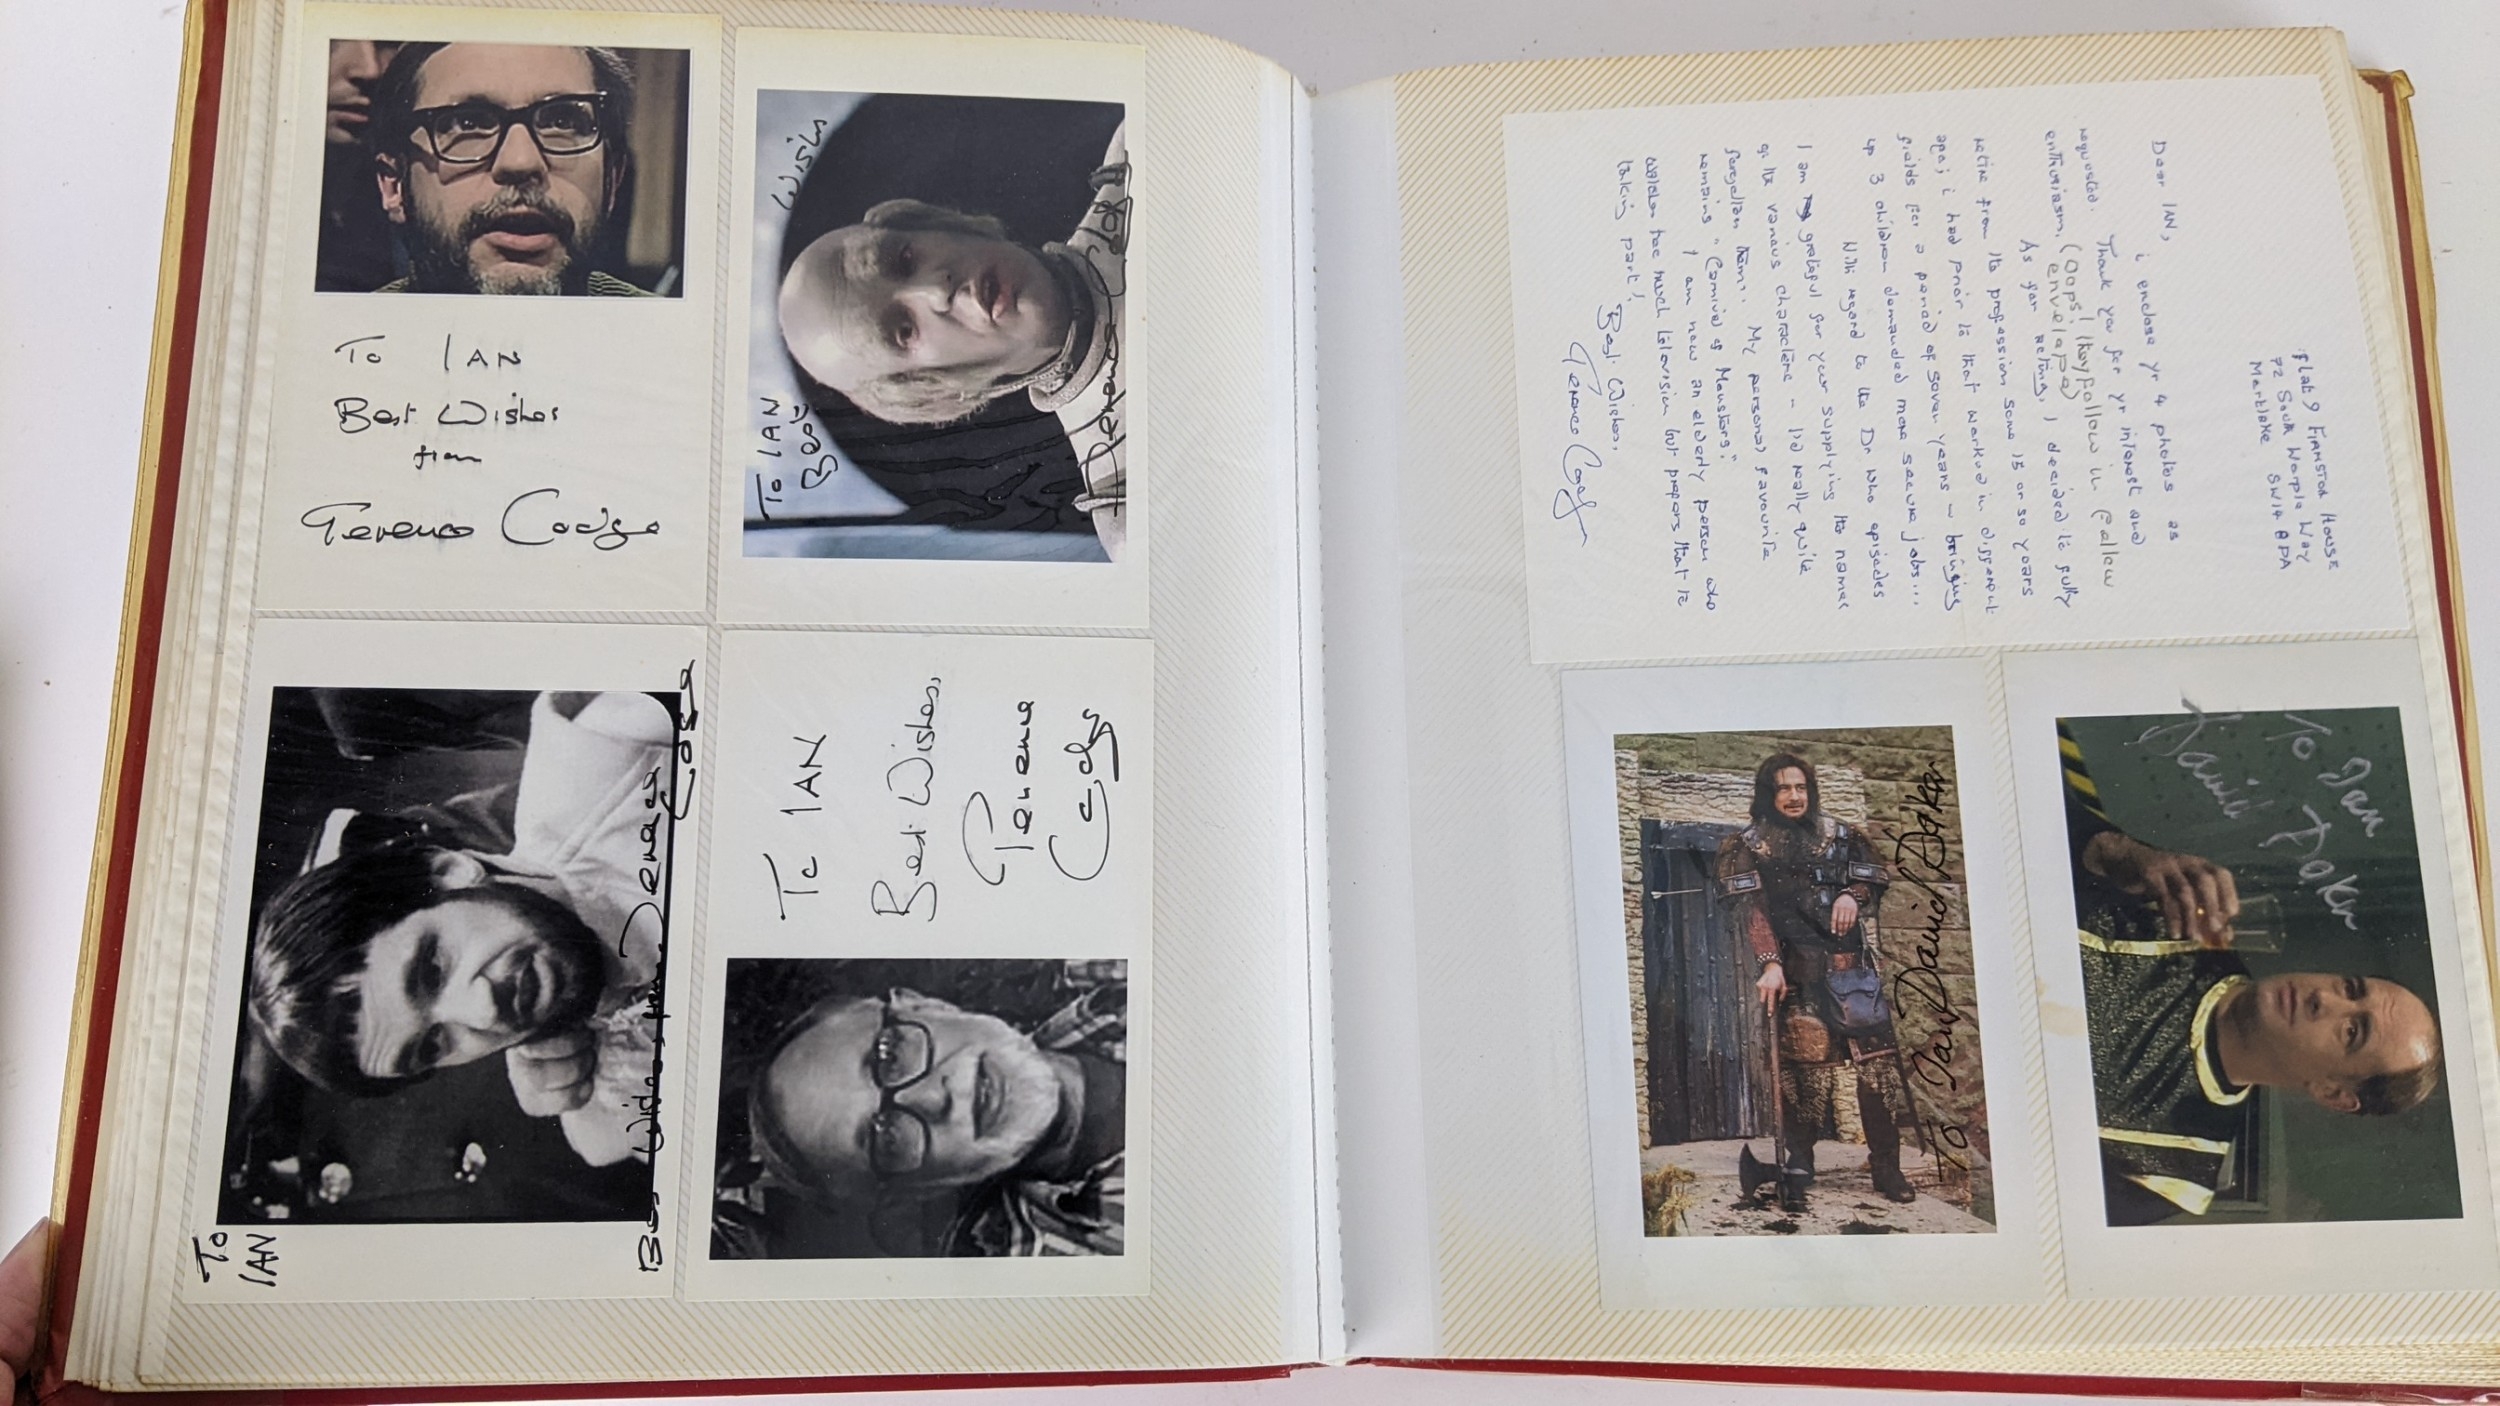 To IAN
Best Wishes
from
Terence Lodge
To IAN
Best Wishes
Terence Lodge
To
IAN
Best Wishes from Terence Lodge
To IAN
Best Wishes,
Terence
Lodge
Flat 9 Firmston House
72 South Worple Way
Mortlake SW14
Dear IAN,
i enclose yr 4 photos as
requested. Thank you for yr interest and
enthusiasm. (Oops! they follow in fellow
envelope)
As for acting, I decided to fully
retire from the profession some 15 or so years
ago; i had prior to that worked in different
fields for a period of seven years – bringing
up 3 children demanded more secure jobs...
With regard to the Dr who episodes
I am grateful for your supplying the names
of the various characters – I'd really quite
forgotten them! My personal favourite
remains "Carnival of Monsters".
I am now an elderly person who
watches too much television but prefers that to
taking part!
Best Wishes,
Terence Lodge
To Ian David Baker
To Ian
David Baker